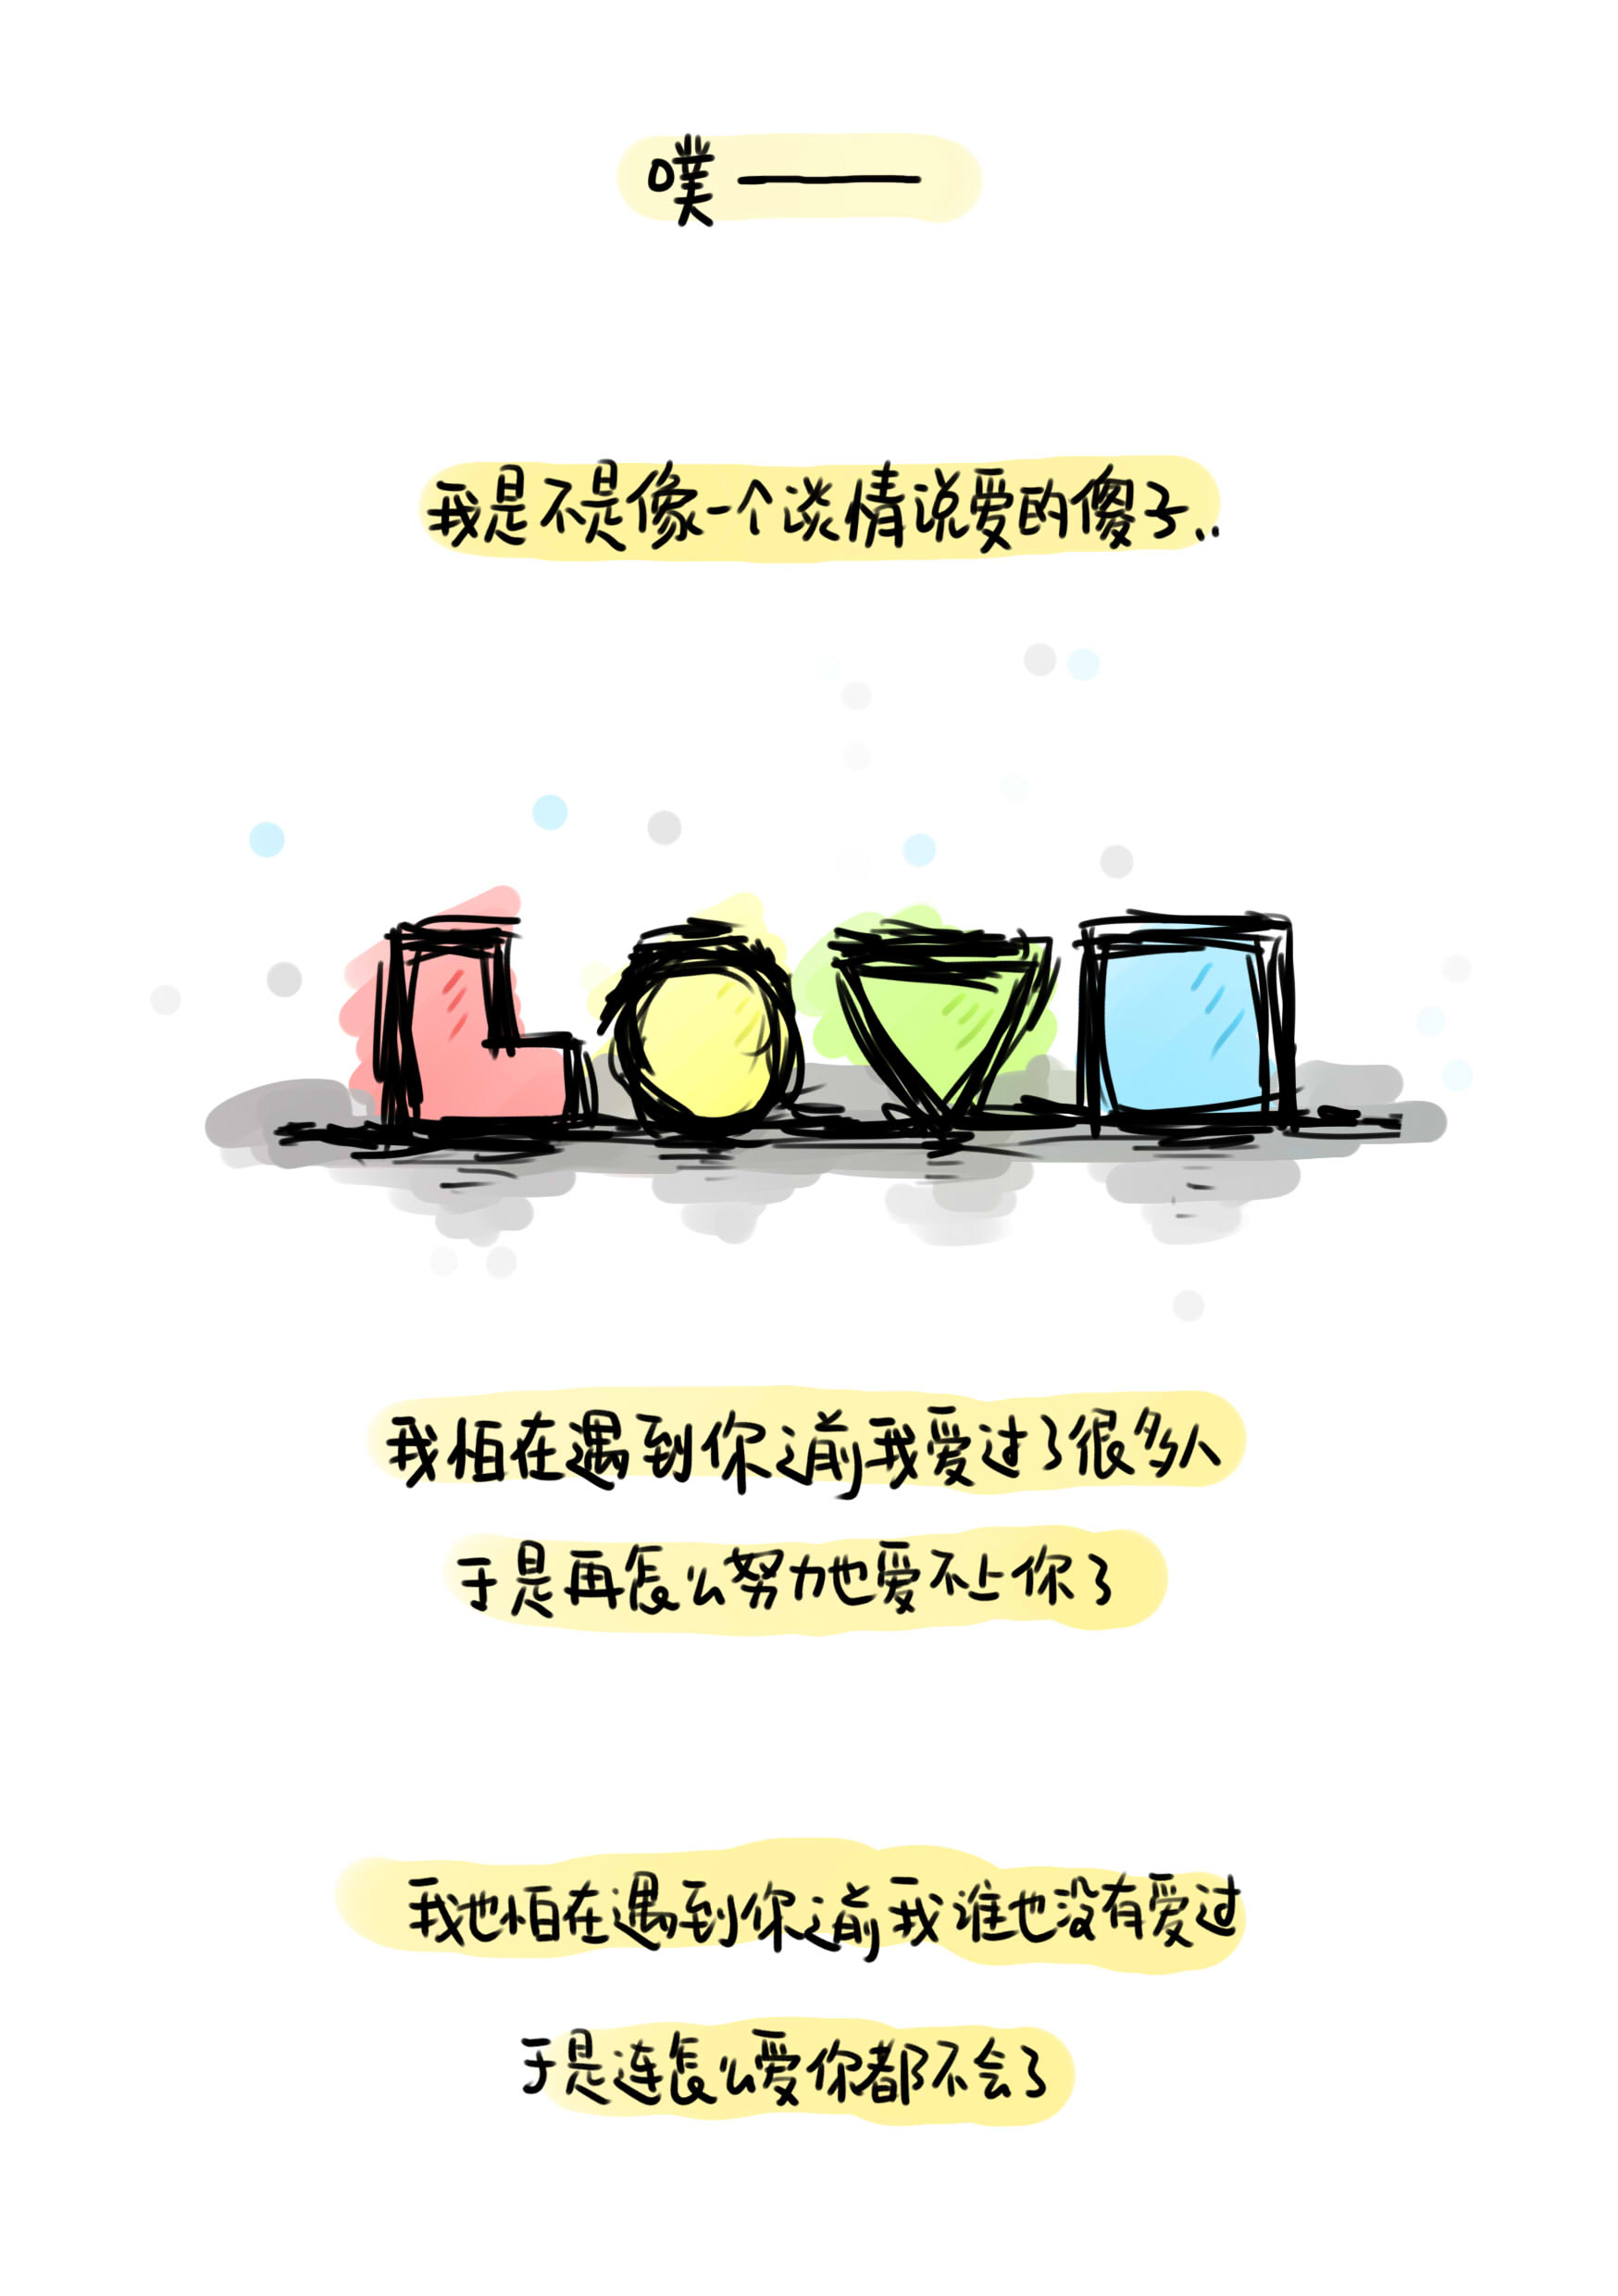 噗——
我是不是像一个谈情说爱的傻子..
LOV口
我怕在遇到你之前我爱过了很多人
于是再怎么努力也爱不上你了
我也怕在遇到你之前我谁也没有爱过
于是连怎么爱你都不会了